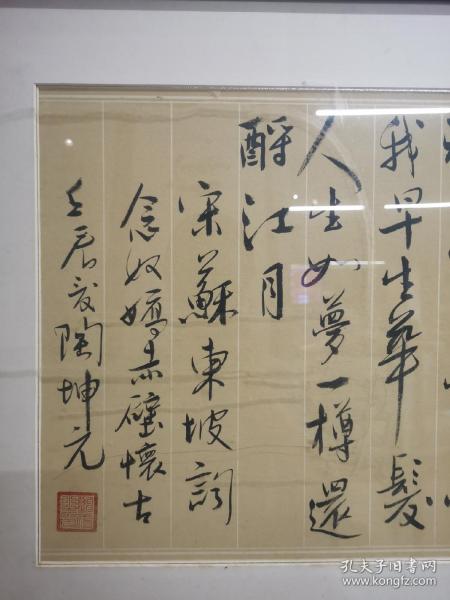 我早生華髮
人生如夢一樽還
酹江月
宋蘇東坡詞
念奴嬌赤壁懷古
壬辰夏陶坤元
孔夫子旧书网
www.kongfz.com